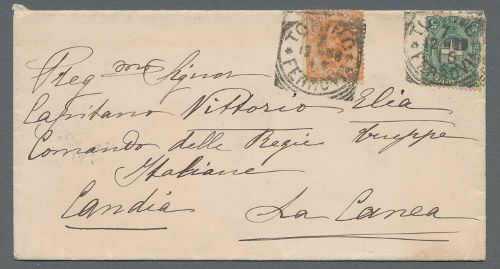 TORINO
FERROVIA
TORINO
FERROVIA
Preg.mo Signor
Capitano Vittorio Elia
Comando delle Regie truppe
Italiane
Candia La Canea